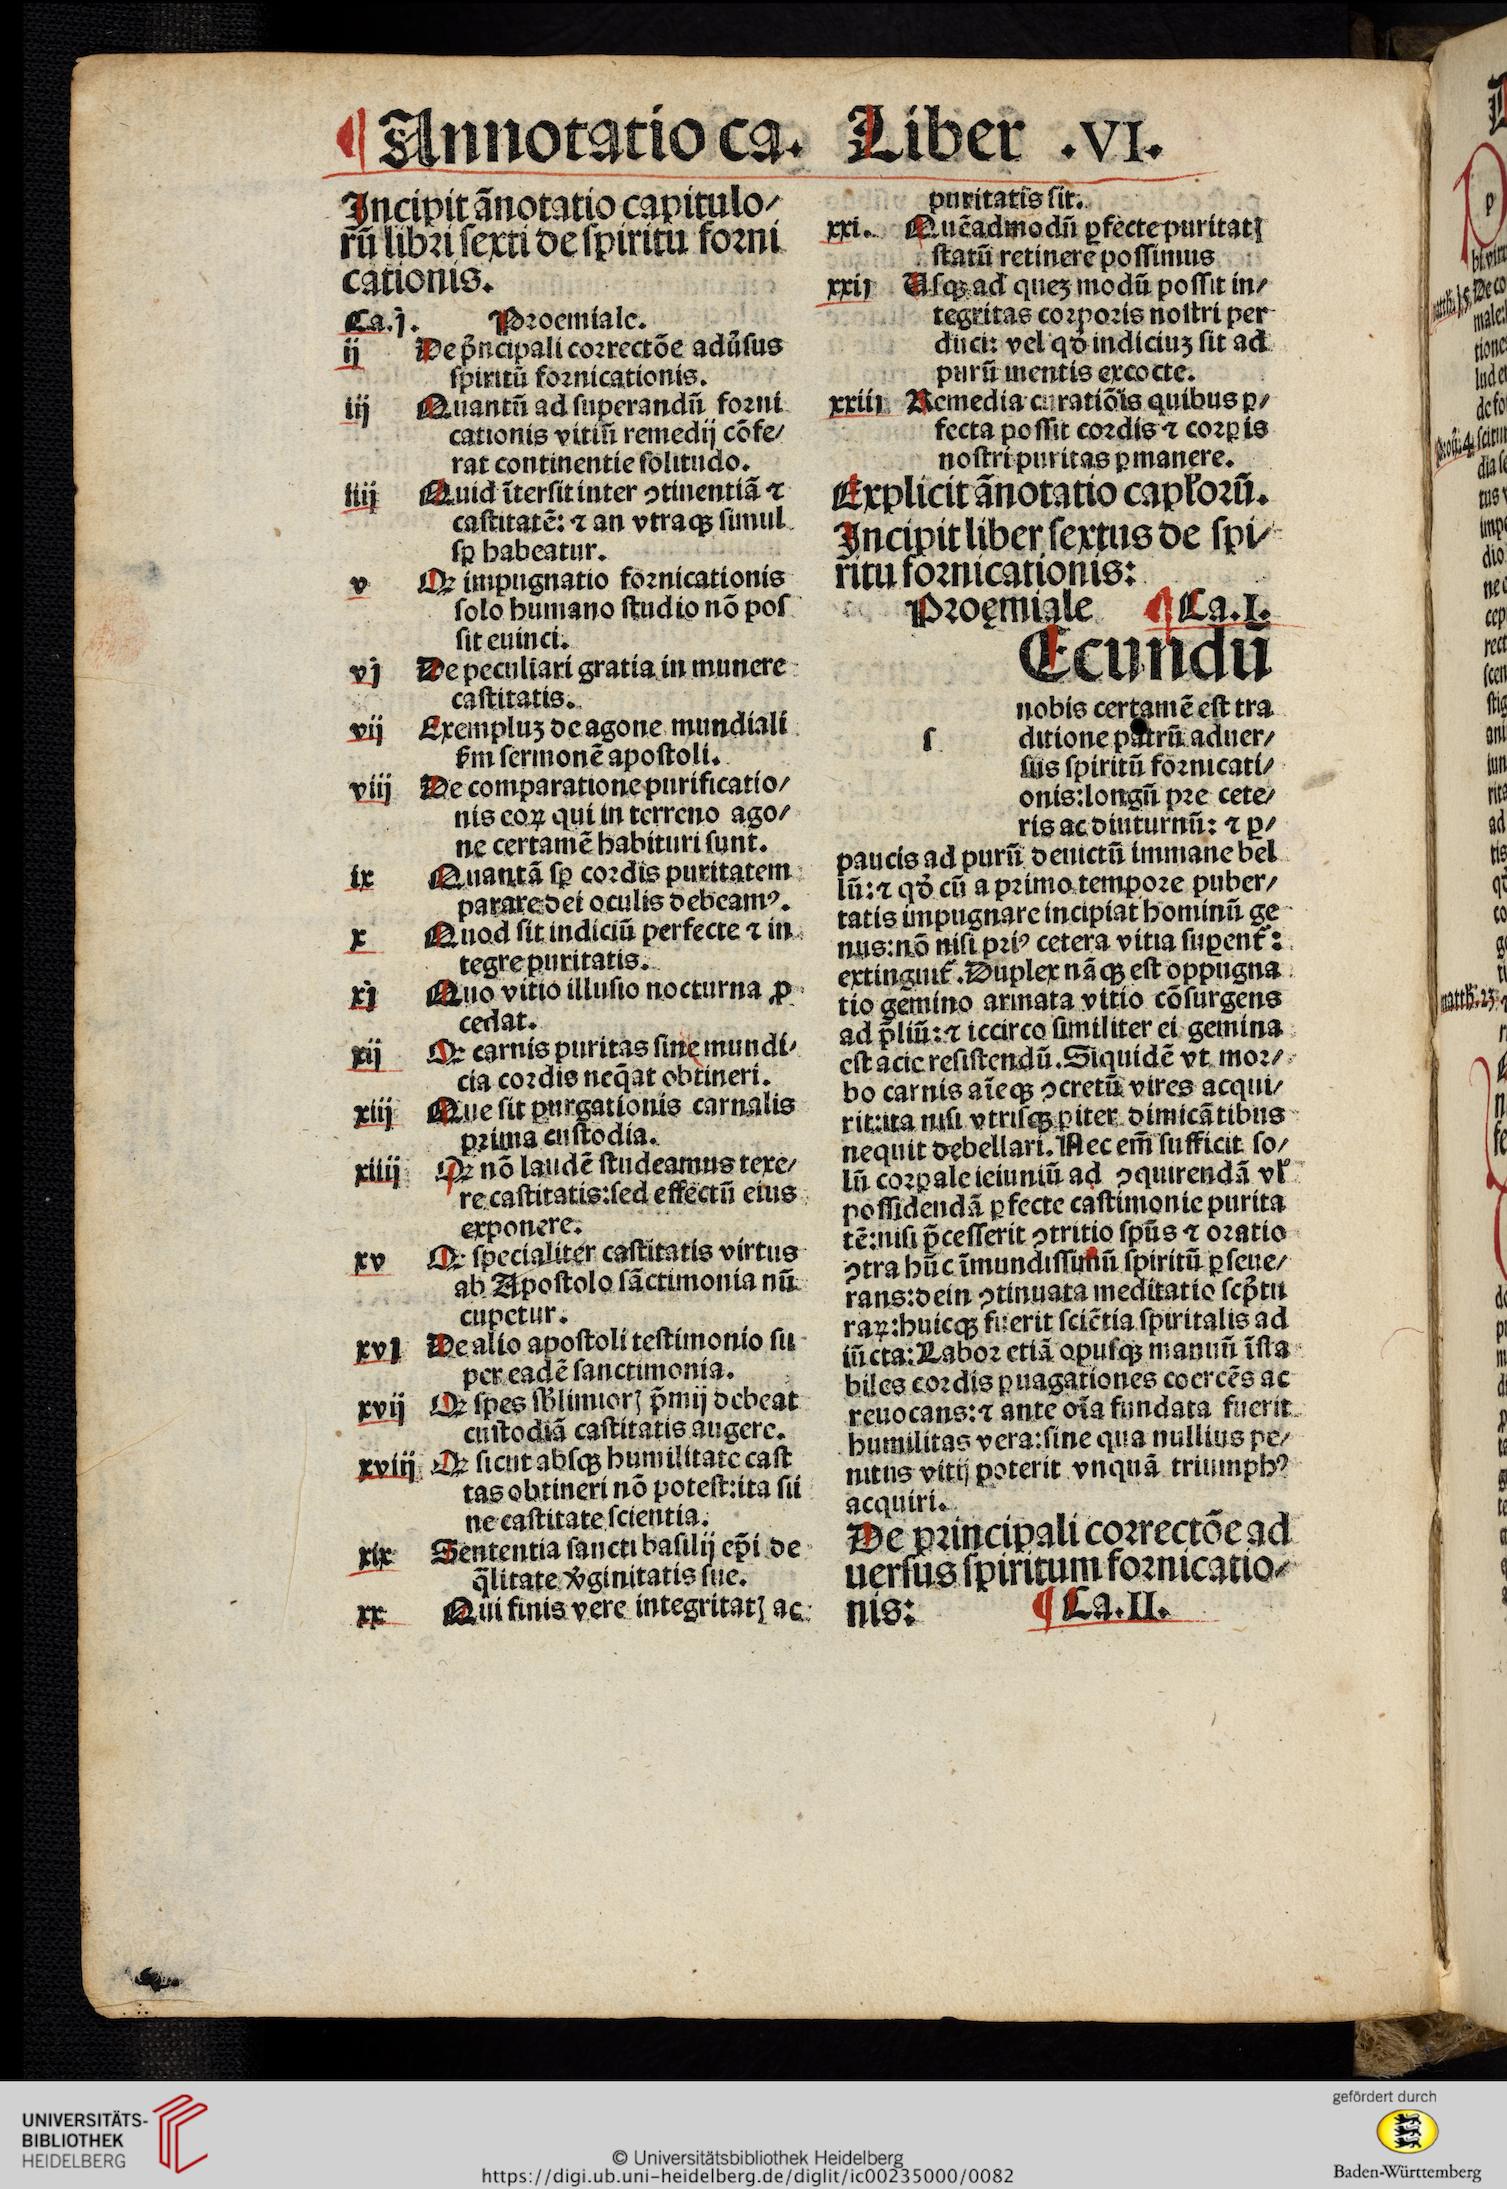 ¶ Annotatio ca. Liber .VI.
Incipit ãnotatio capitulo⸗
rũ libri ſexti de ſpiritu forni
cationis.
Ca.j. Proemiale.
ij De p̃ncipali correctõe adũſus
ſpiritũ fornicationis.
iij Quantũ ad ſuperandũ forni
cationis vitiũ remedij cõfe⸗
rat continentie ſolitudo.
iiij Quid ĩterſit inter ↄtinentiã ⁊
caſtitatẽ: ⁊ an vtraqꝫ ſimul
ſꝑ habeatur.
v Qꝛ impugnatio fornicationis
ſolo humano ſtudio nõ poſ
ſit euinci.
vj De peculiari gratia in munere
caſtitatis.
vij Exempluꝫ de agone mundiali
ẜm ſermonẽ apoſtoli.
viij De comparatione purificatio⸗
nis eoꝝ qui in terreno ago⸗
ne certamẽ habituri ſunt.
ix Quantã ſꝑ cordis puritatem
parare dei oculis debeamꝰ.
x Quod ſit indiciũ perfecte ⁊ in
tegre puritatis.
xj Quo vitio illuſio nocturna ꝓ
cedat.
xij Qꝛ carnis puritas ſine mundi⸗
cia cordis neq̃at obtineri.
xiij Que ſit purgationis carnalis
prima cuſtodia.
xiiij Qꝛ nõ laudẽ ſtudeamus texe⸗
re caſtitatis:ſed effectũ eius
exponere.
xv Qꝛ ſpecialiter caſtitatis virtus
ab Apoſtolo ſãctimonia nũ
cupetur.
xvj De alio apoſtoli teſtimonio ſu
per eadẽ ſanctimonia.
xvij Qꝛ ſpes ſb̾limiorꝭ p̃mij debeat
cuſtodiã caſtitatis augere.
xviij Qꝛ ſicut abſqꝫ humilitate caſt
tas obtineri nõ poteſt:ita ſii
ne caſtitate ſcientia.
xix Sententia ſancti baſilij ep̃i de
q̃litate v̾ginitatis ſue.
xx Qui finis vere integritatꝭ ac
puritatis ſit.
xxi. Quẽadmodũ ꝑfecte puritatꝭ
ſtatũ retinere poſſimus
xxij Uſqꝫ ad queꝫ modũ poſſit in⸗
tegritas corporis noſtri per
duci: vel qđ indiciuꝫ ſit ad
purũ mentis excocte.
xxiij Remedia curatiõis quibus ꝑ⸗
fecta poſſit cordis ⁊ corꝑis
noſtri puritas ꝑmanere.
Explicit ãnotatio capl̾orũ.
Incipit liber ſextus de ſpi⸗
ritu fornicationis:
Proęmiale ¶ Ca.I.
ſ
Ecundũ
nobis certamẽ eſt tra
ditione patrũ aduer⸗
ſus ſpiritũ fornicati⸗
onis:longũ pre cete⸗
ris ac diuturnũ: ⁊ ꝑ⸗
paucis ad purũ deuictũ immane bel
lũ:⁊ qđ cũ a primo tempore puber⸗
tatis impugnare incipiat hominũ ge
nus:nõ niſi priꝰ cetera vitia ſuꝑent̃:
extinguit̃.Duplex nãqꝫ eſt oppugna
tio gemino armata vitio cõſurgens
ad p̃liũ:⁊ iccirco ſimiliter ei gemina
eſt acie reſiſtendũ.Siquidẽ vt mor⸗
bo carnis aĩeqꝫ ↄcretũ vires acqui⸗
rit:ita niſi vtriſqꝫ ꝑiter dimicãtibus
nequit debellari.Nec em̃ ſufficit ſo⸗
lũ corꝑale ieiuniũ ad ↄquirendã vl̾
poſſidendã ꝑfecte caſtimonie purita
tẽ:niſi p̃ceſſerit ↄtritio ſpũs ⁊ oratio
ↄtra hũc ĩmundiſſimũ ſpiritũ ꝑſeue⸗
rans:dein ↄtinuata meditatio ſcp̃tu
raꝝ:huicqꝫ fuerit ſciẽtia ſpiritalis ad
iũcta:Labor etiã opuſqꝫ manuũ ĩſta
biles cordis ꝑuagationes coercẽs ac
reuocans:⁊ ante oĩa fundata fuerit
humilitas vera:ſine qua nullius pe⸗
nitus vitij poterit vnquã triumphꝰ
acquiri.
De principali correctõe ad
uerſus ſpiritum fornicatio⸗
nis: ¶ Ca.II.
matth: 23
UNIVERSITÄTS-
BIBLIOTHEK
HEIDELBERG
© Universitätsbibliothek Heidelberg
https://digi.ub.uni-heidelberg.de/diglit/ic00235000/0082
gefördert durch
Baden-Württemberg